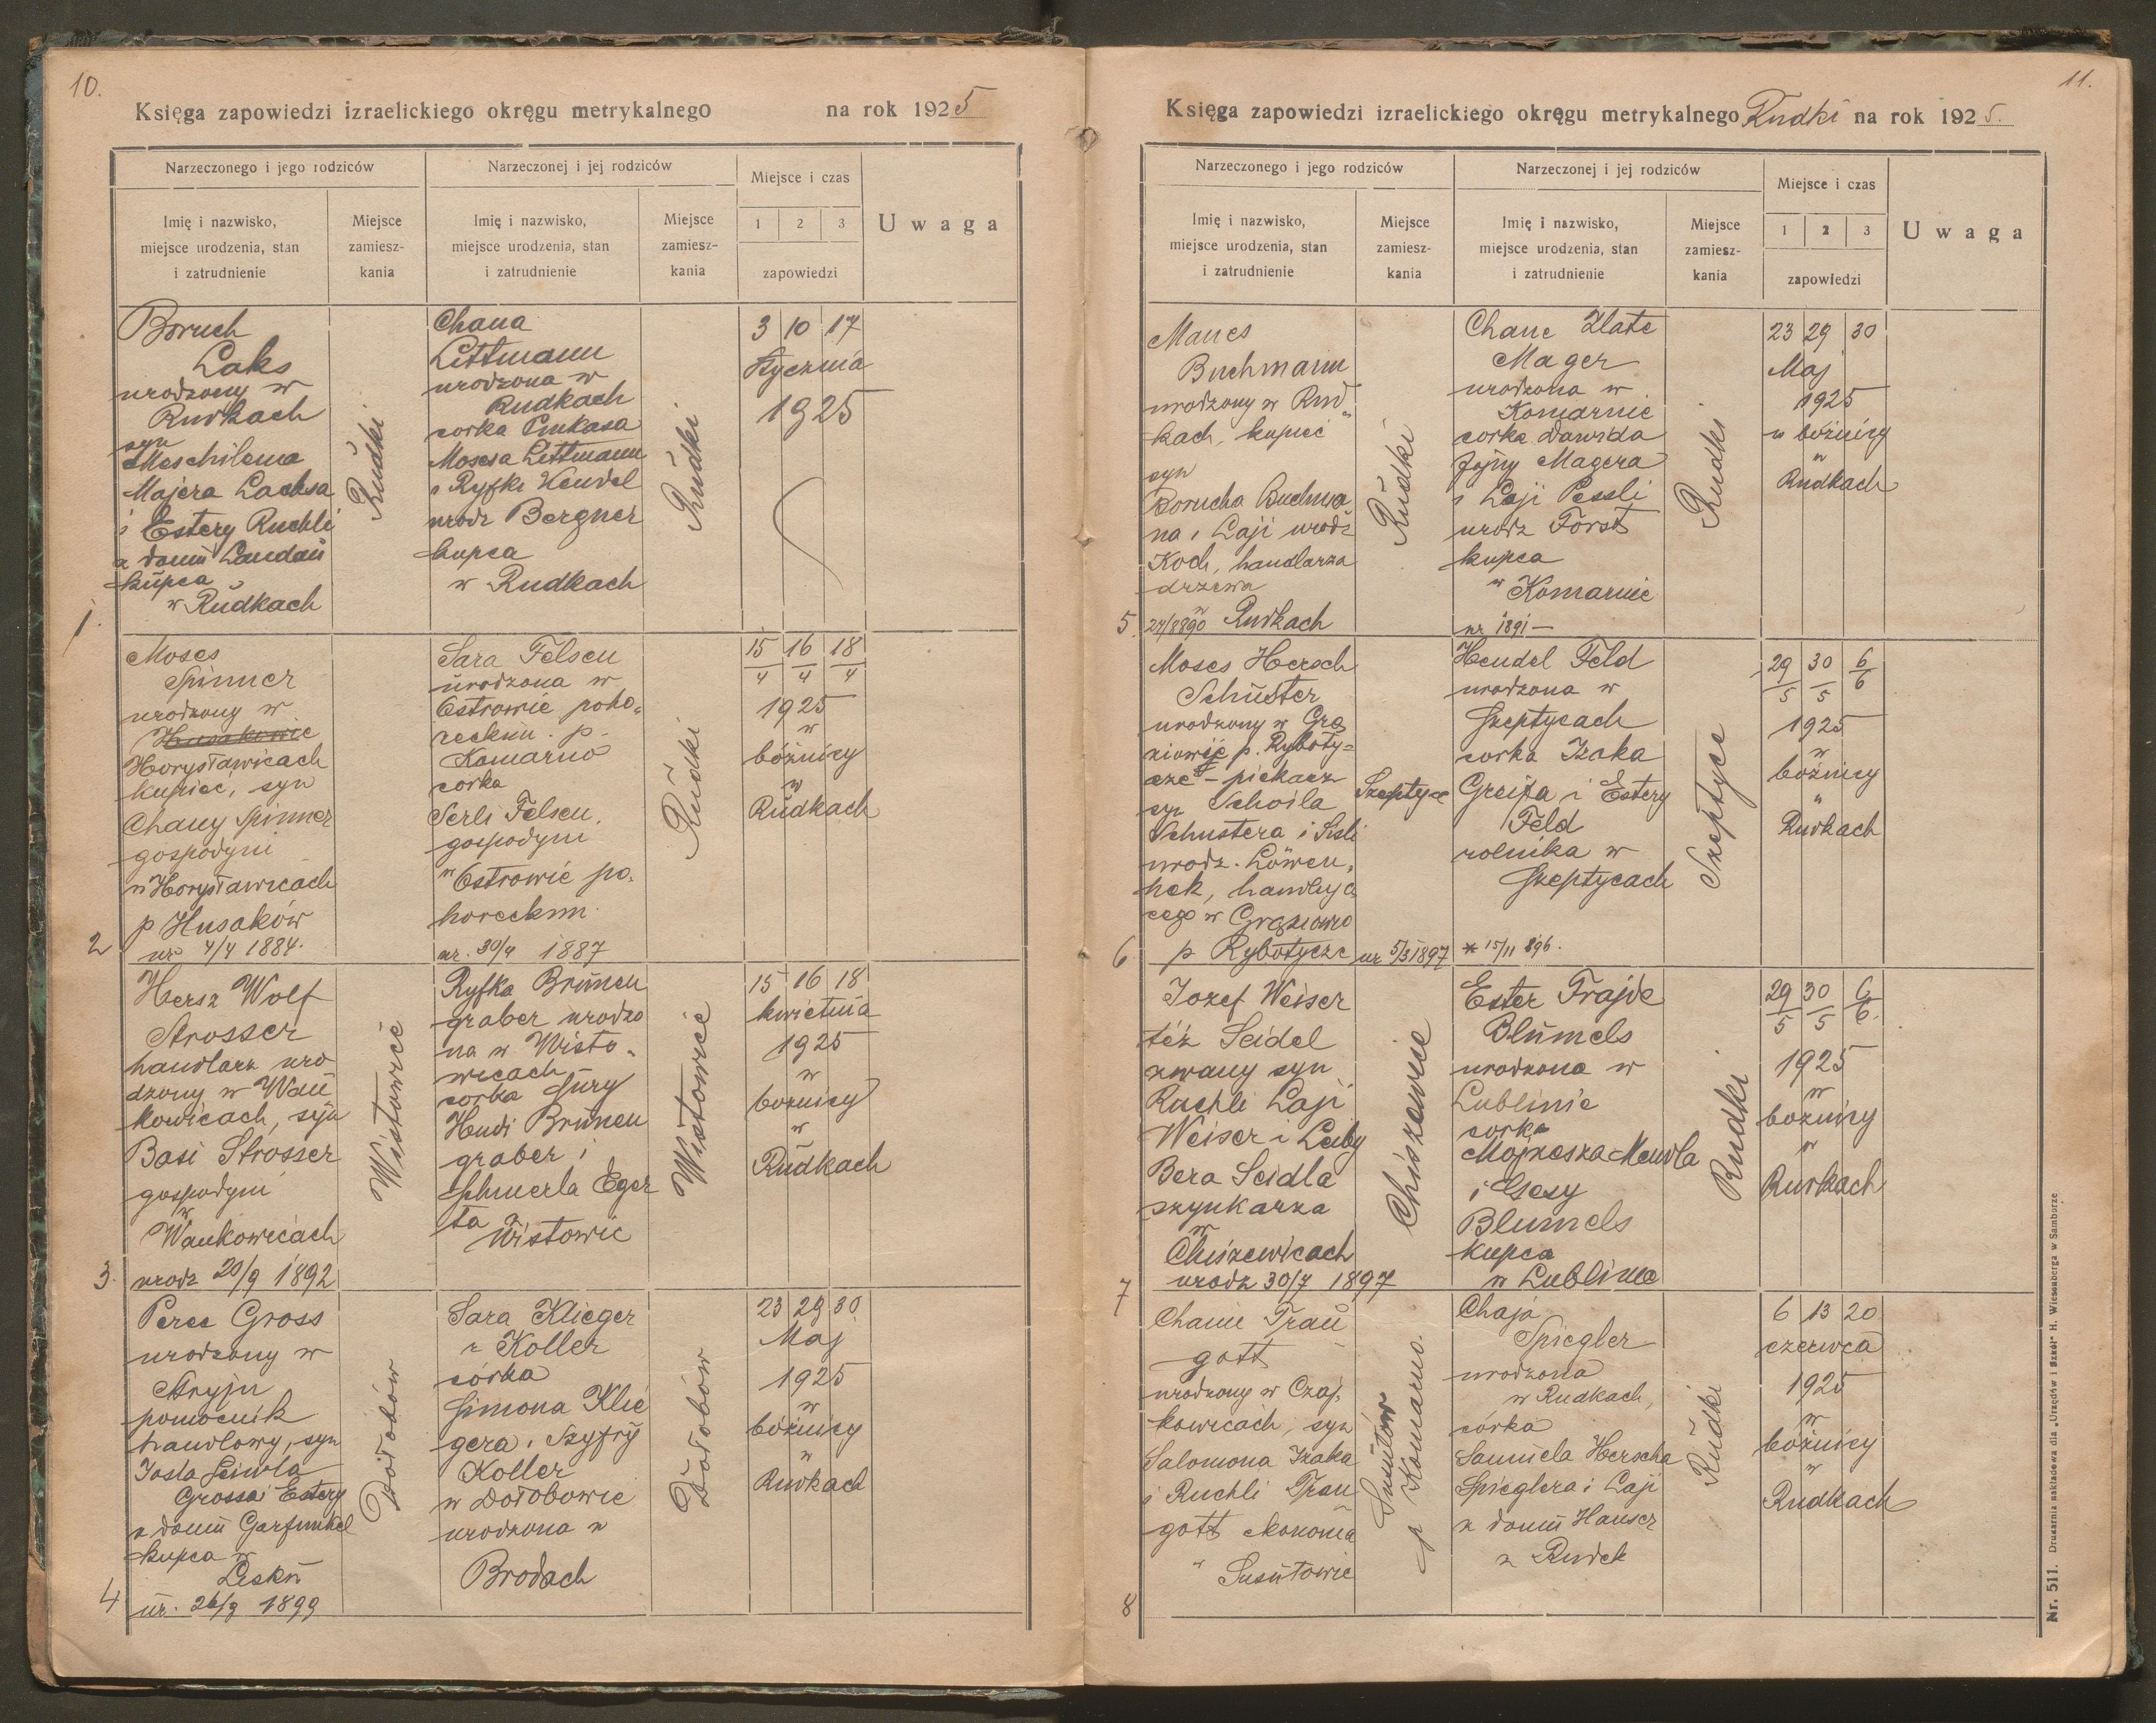 10.
Księga zapowiedzi izraelickiego okręgu metrykalnego na rok 1925
Narzeczonego i jego rodziców
Narzeczonej i jej rodziców
Miejsce i czas
Imię i nazwisko,
miejsce urodzenia, stan
i zatrudnienie
Miejsce
zamiesz-
kania
Imię i nazwisko,
miejsce urodzenia, stan
i zatrudnienie
Miejsce
zamiesz-
kania
1 2 3
zapowiedzi
Uwaga
1.
Boruch
Laks
urodzony w
Rudkach
syn
Meschilema
Majera Lachsa
i Estery Ruchli
z domu Landau
kupca
w Rudkach
Rudki
Chana
Littmann
urodzona w
Rudkach
corka Pinkasa
Mosesa Littmann
i Ryfki Hendel
urodz Bergner
kupca
w Rudkach
Rudki
3 10 17
Stycznia
1925
2
Moses
Spinner
urodzony w
Husakowie
Horysławicach
kupiec, syn
Chany Spinner
gospodyni
w Horysławicach
p Husaków
ur. 4/4 1884.
Sara Felsen
urodzona w
Ostrowie poho-
reckim. p.
Komarno
corka
Serli Felsen,
gospodyni
w Ostrowie po-
horeckim
ur. 30/4 1887
Rudki
15 16 18
4 4 4
1925
w
bóżnicy
w
Rudkach
3.
Hersz Wolf
Strosser
handlarz uro
dzony w Wań
kowicach, syn
Basi Strosser
gospodyni
w
Wankowicach
urodz 20/9 1892
Wistowice
Ryfka Brunen
graber urodzo
na w Wisto-
wicach
corka Sury
Hudi Brunen
graber i
Schmerla Eger
ta z
Wistowic
Wistowice
15 16 18
kwietnia
1925
w
bożnicy
w
Rudkach
4
Peres Gross
urodzony w
Stryju
pomocnik
handlowy, syn
Josla Leiwla
Grossa i Estery
z domu Garfunkel
kupca w
Lesku
ur. 26/9 1899
Dołobów
Sara Klieger
r Koller
córka
Simona Klie
gera i Szyfry
Koller
w Dołobowie
urodzona w
Brodach
Dołobów
23 29 30
Maj
1925
w
bóżnicy
w
Rudkach
11.
Księga zapowiedzi izraelickiego okręgu metrykalnego Rudki na rok 1925.
Narzeczonego i jego rodziców
Narzeczonej i jej rodziców
Miejsce i czas
Imię i nazwisko,
miejsce urodzenia, stan
i zatrudnienie
Miejsce
zamiesz-
kania
Imię i nazwisko,
miejsce urodzenia, stan
i zatrudnienie
Miejsce
zamiesz-
kania
1 2 3
zapowiedzi
Uwaga
5.
Manes
Buchmann
urodzony w Rud
kach, kupiec
syn
Borucha Buchma
na i Laji urodz
Koch, handlarza
drzewa
w
27/8890 Rudkach
Rudki
Chane Zlate
Mager
urodzona w
Komarnie
corka Dawida
Jojny Magera
i Laji Pessli
urodz Först
kupca
w Komarnie
ur 1891 —
Rudki
23 29 30
Maj
1925
w bóżnicy
w
Rudkach
6
Moses Hersch
Schuster
urodzony w Grą
ziowie p. Ryboty-
cze - piekarz
syn Schoila
Schustera i Sisli
urodz. Löwen,
hek, handlują
cego w Grąziowie
p Rybotycze ur 5/3 1897
Szeptyce
Hendel Feld
urodzona w
Szeptycach
corka Izaka
Greifa i Estery
Feld
rolnika w
Szeptycach
* 15/11 896.
Szeptyce
29 30 6
5 5 6
1925
w
bóżnicy
w
Rudkach
7
Jozef Weiser
też Seidel
zwany syn
Ruchli Laji
Weiser i Leiby
Bera Seidla
szynkarza
w
Chiszewicach
urodz 30/7 1897
Chiszewice
Ester Frajde
Blumels
urodzona w
Lublinie
corka
Mojżesza Mendla
i Gesy
Blumels
kupca
w Lublinie
Rudki
29 30 6
5 5 6.
1925
w
bożnicy
w
Rudkach
8
Chaim Trau
gott
urodzony w Czaj,
kowicach, syn
Salomona Izaka
i Ruchli Trau
gott ekonoma
w Susułowie
Susułów
p Komarno.
Chaja
Spiegler
urodzona
w Rudkach,
córka
Samuela Herscha
Spieglera i Laji
z domu Hauser
z Rudek
Rudki
6 13 20
czerwca
1925
w
bóżnicy
w
Rudkach
Nr. 511. Drukarnia nakładowa dla „Urzędów i Szkół" H. Wiesenberga w Samborze